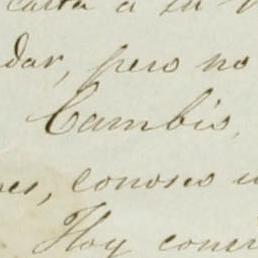 carta a tu
dar, pero no
Cambio,
es, conosco
Hoy